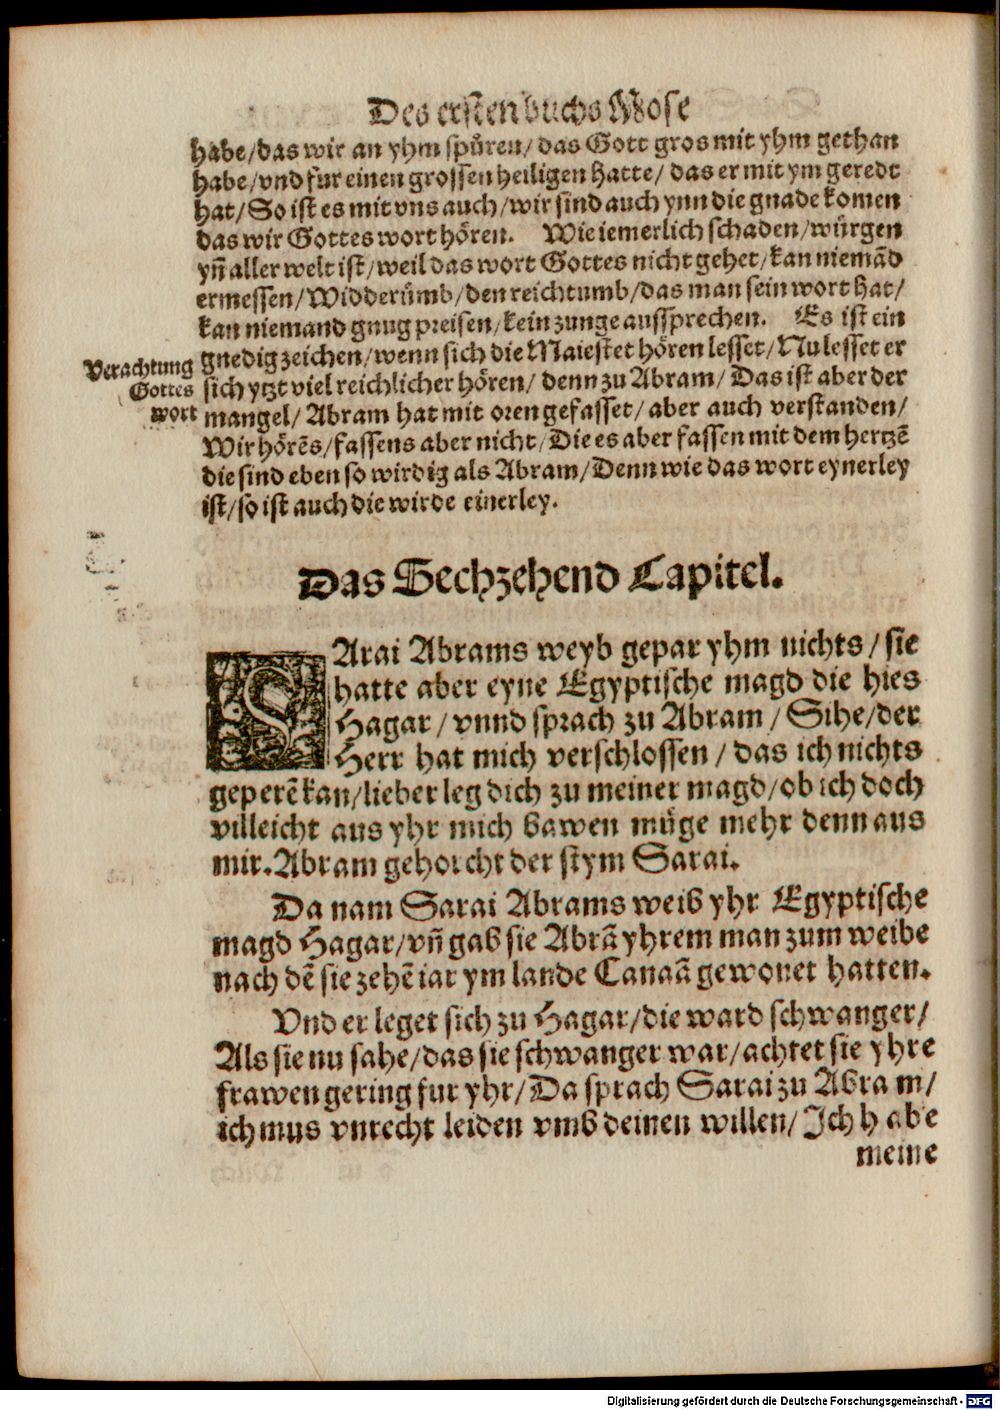 Des ersten buchs Mose
habe/das wir an yhm spůren/das Gott gros mit yhm gethan
habe/vnd fur einen grossen heiligen hatte/das er mit ym geredt
hat/So ist es mit vns auch/wir sind auch ynn die gnade komen
das wir Gottes wort hören. Wie iemerlich schaden/würgen
yñ aller welt ist/weil das wort Gottes nicht gehet/kan niemãd
ermessen/Widderůmb/den reichtumb/das man sein wort hat/
kan niemand gnug preisen/kein zunge aussprechen. Es ist ein
gnedig zeichen/wenn sich die Maiestet hören lesset/Nu lesset er
sich ytzt viel reichlicher hören/denn zu Abram/Das ist aber der
mangel/Abram hat mit oren gefasset/aber auch verstanden/
Wir hörẽs/fassens aber nicht/Die es aber fassen mit dem hertzẽ
die sind eben so wirdig als Abram/Denn wie das wort eynerley
ist/so ist auch die wirde einerley.
Verachtung
Gottes
wort
Das Sechzehend Capitel.
SArai Abrams weyb gepar yhm nichts/sie
hatte aber eyne Egyptische magd die hies
Hagar/vnnd sprach zu Abram/Sihe/der
Herr hat mich verschlossen/das ich nichts
geperẽ kan/lieber leg dich zu meiner magd/ob ich doch
villeicht aus yhr mich bawen müge mehr denn aus
mir. Abram gehorcht der stym Sarai.
Da nam Sarai Abrams weib yhr Egyptische
magd Hagar/vñ gab sie Abrã yhrem man zum weibe
nach dẽ sie zehẽ iar ym lande Canaã gewonet hatten.
Vnd er leget sich zu Hagar/die ward schwanger/
Als sie nu sahe/das sie schwanger war/achtet sie yhre
frawen gering fur yhr/Da sprach Sarai zu Abra m/
ich mus vnrecht leiden vmb deinen willen/Ich h abe
meine
Digitalisierung gefördert durch die Deutsche Forschungsgemeinschaft - DFG